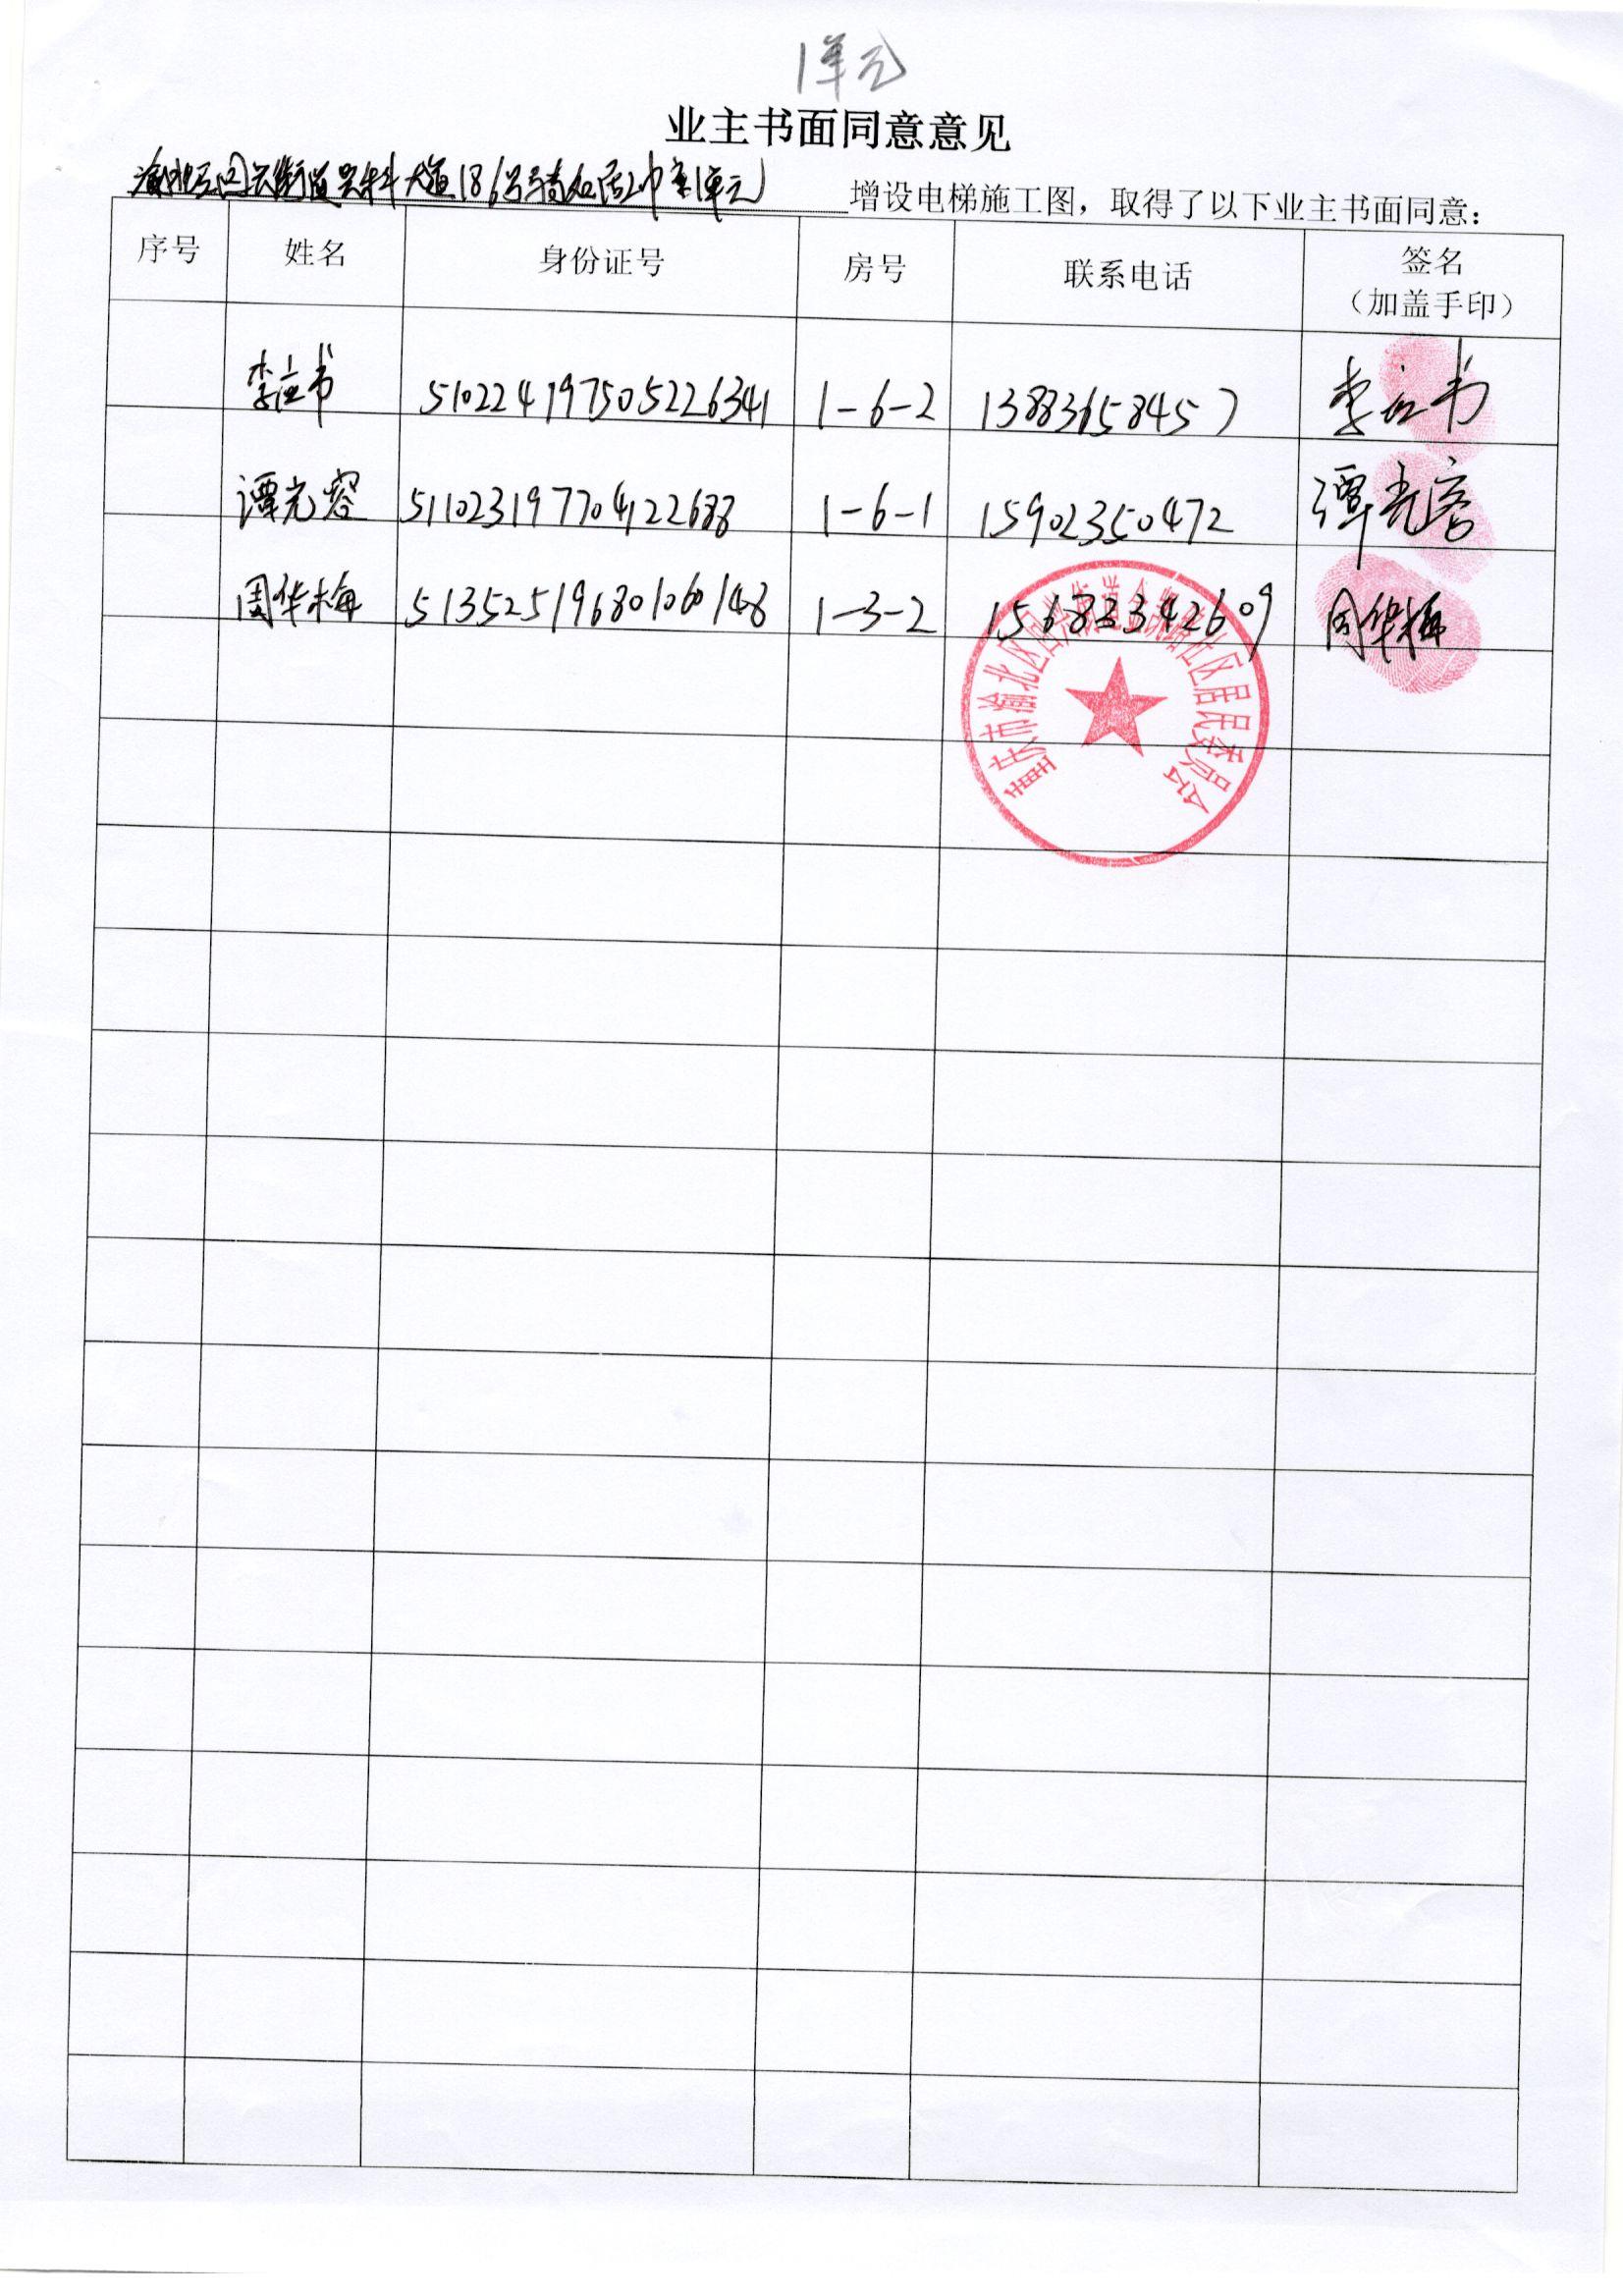 1单元
业主书面同意意见
渝北区回兴街道兴科大道186号 1单元 增设电梯施工图，取得了以下业主书面同意：
序号 姓名 身份证号 房号 联系电话 签名
（加盖手印）
李应书 510224197505226341 1-6-2 13883658457 李应书
谭光容 511023197704122688 1-6-1 15902350472 谭光容
周华梅 513525196801060148 1-3-2 15683342609 周华梅
重庆市渝北区回兴街道 社区居民委员会